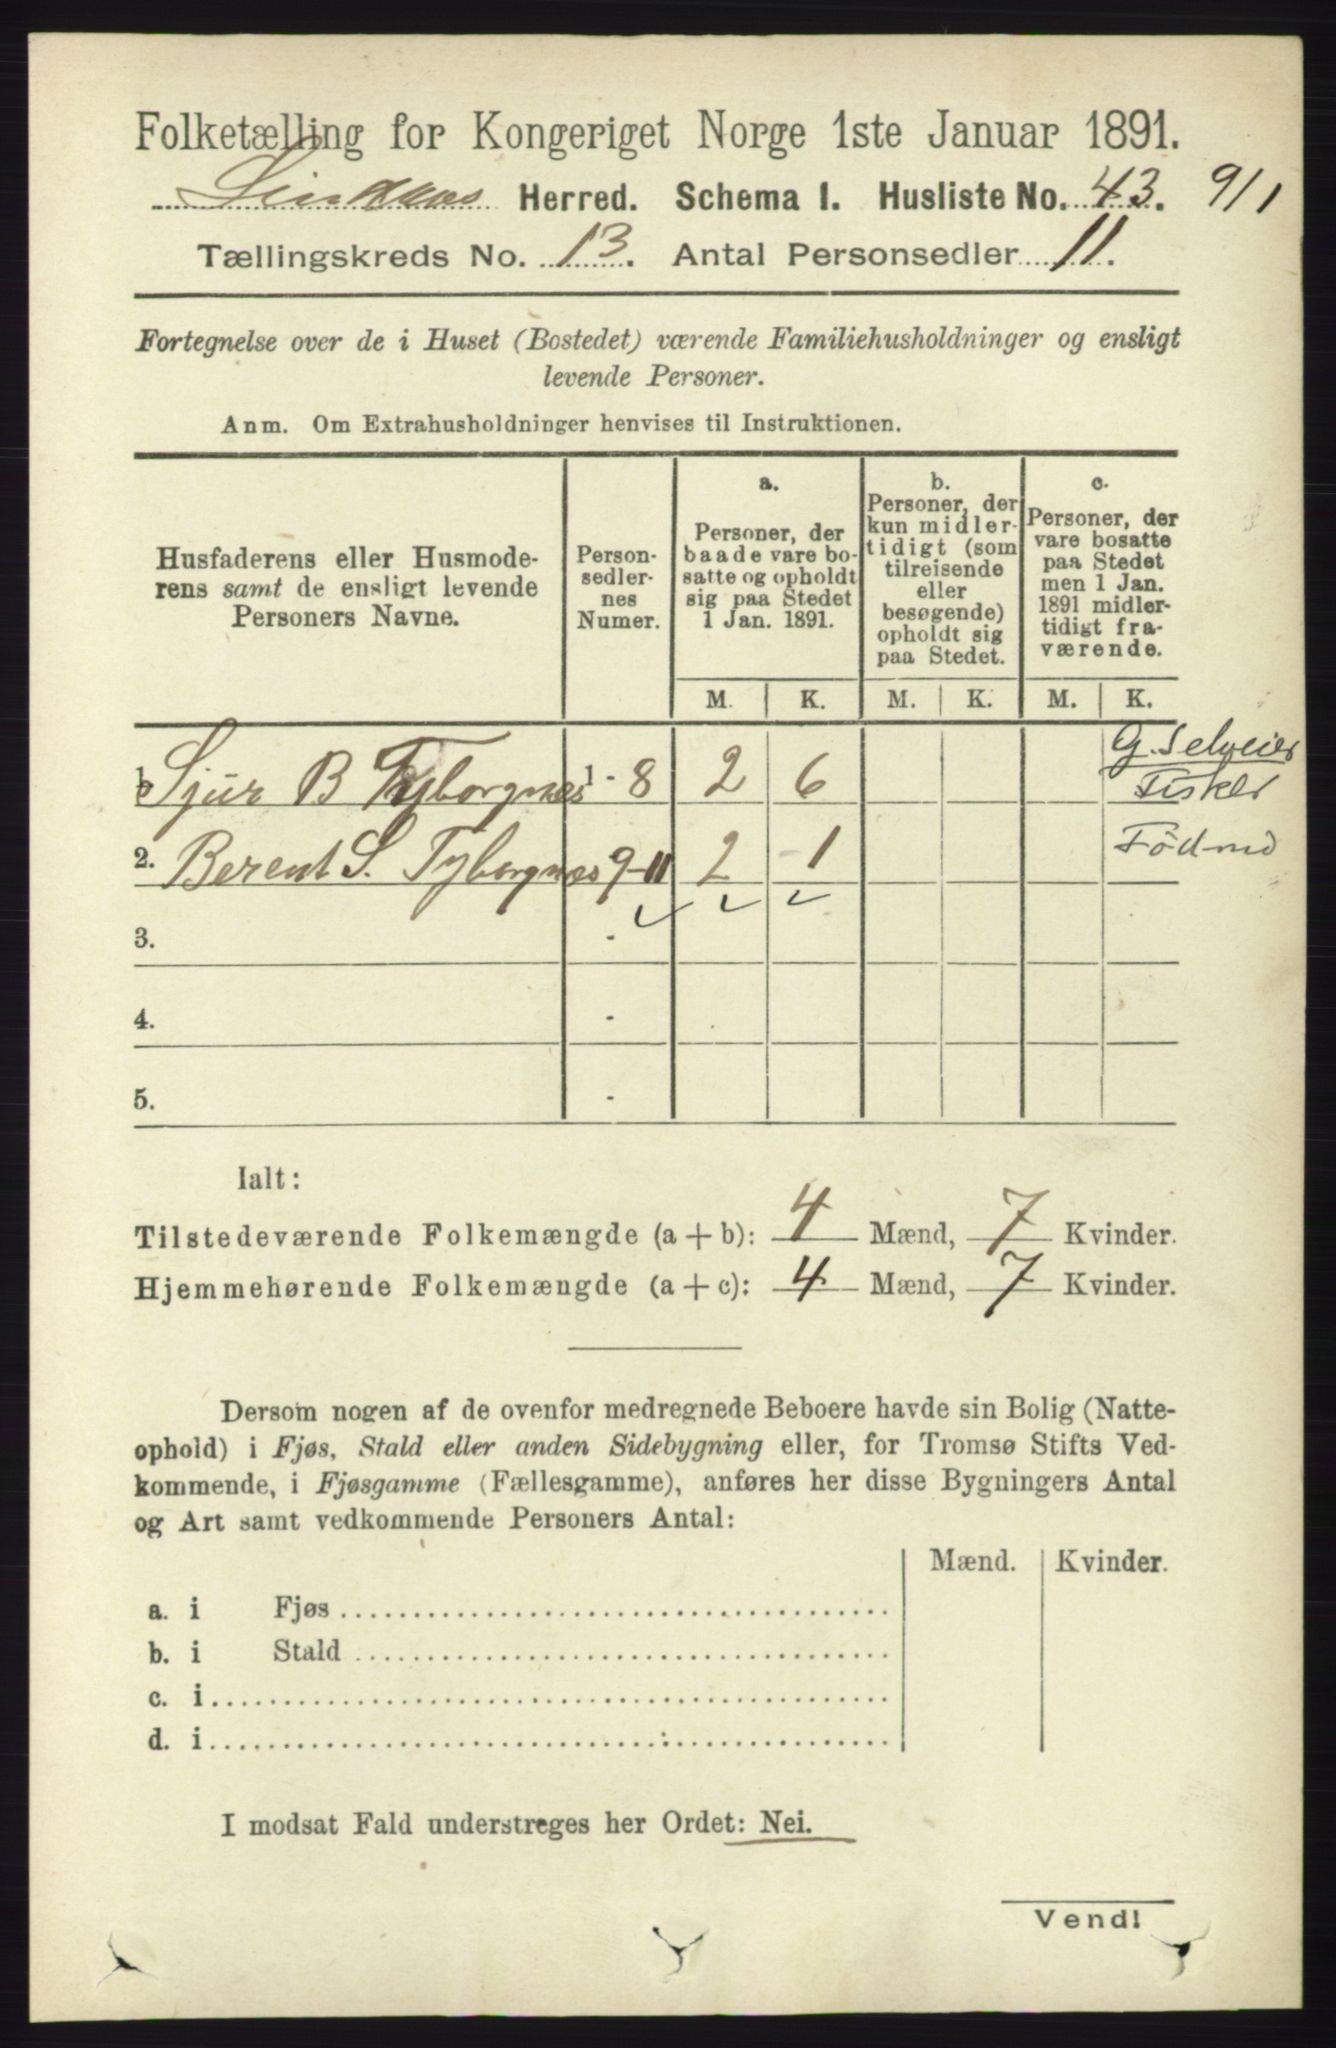 Folketælling for Kongeriget Norge 1ste Januar 1891.
Lindaas Herred. Schema I. Husliste No. 43. 9/1
Tællingskreds No. 13. Antal Personsedler 11.
Fortegnelse over de i Huset (Bostedet) værende Familiehusholdninger og ensligt
levende Personer.
Anm. Om Extrahusholdninger henvises til Instruktionen.
Husfaderens eller Husmode-
rens samt de ensligt levende
Personers Navne.
Person-
sedler-
nes
Numer.
a.
Personer, der
baade vare bo-
satte og opholdt
sig paa Stedet
1 Jan. 1891.
b.
Personer, der
kun midler-
tidigt (som
tilreisende
eller
besøgende)
opholdt sig
paa Stedet.
c.
Personer, der
vare bosatte
paa Stedet
men 1 Jan.
1891 midler-
tidigt fra-
værende.
M. K. M. K. M. K.
1. Sjur B Tyborgnes 1 - 8 2 6 G. Selveier
Fisker
2. Berent S. Tyborgnes 9-11 2 - 1 Födrd
3. -
4. -
5. -
Ialt:
Tilstedeværende Folkemængde (a + b): 4 Mænd, 7 Kvinder.
Hjemmehørende Folkemængde (a + c): 4 Mænd, 7 Kvinder.
Dersom nogen af de ovenfor medregnede Beboere havde sin Bolig (Natte-
ophold) i Fjøs, Stald eller anden Sidebygning eller, for Tromsø Stifts Ved-
kommende, i Fjøsgamme (Fællesgamme), anføres her disse Bygningers Antal
og Art samt vedkommende Personers Antal:
Mænd. Kvinder.
a. i Fjøs
b. i Stald
c. i
d. i
I modsat Fald understreges her Ordet: Nei.
Vend!